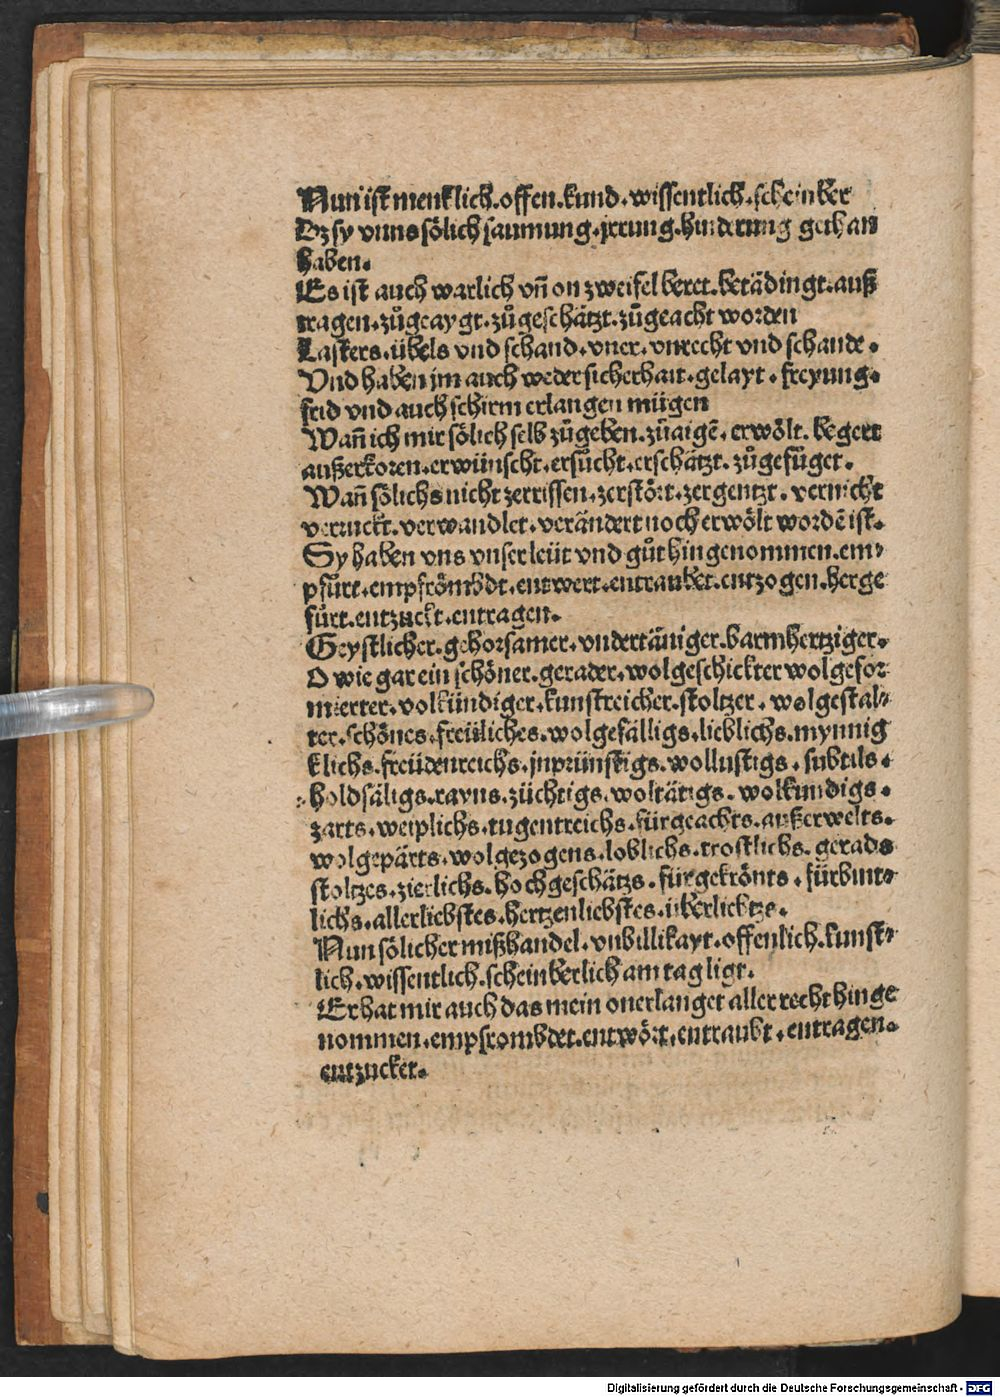 Nun ist menklich.offen.kund.wissentlich.scheinber
Dz sy vnns sölich saumung.jrrung.hinderung gethan
haben.
Es ist auch warlich vn̄ on zweifel beret.betädingt.auß
tragen.zůgeaygt.zůgeschätzt.zůgeacht worden
Lasters.übels vnd schand.vner.vnrecht vnd schande.
Vnd haben jm auch weder sicherhait.gelayt.freyung.
frid vnd auch schirm erlangen mügen
Wan̄ ich mir sölich selb zůgeben.zůaigē.erwölt.begert
außerkoren.erwünscht.ersůcht.erschätzt.zůgefüget.
Wan̄ sölichs nicht zerrissen.zerstört.zergentzt.vernicht
verruckt.verwandlet.verändert noch erwölt wordē ist.
Sy haben vns vnser leüt vnd gůt hingenommen.em⸗
pfürt.empfrömbdt.entwert.entraubet.entzogen.herge
fürt.entzuckt.entragen.
Geystlicher.gehorsamer.vndertäniger.barmhertziger.
O wie gar ein schöner.gerader.wolgeschickter wolgefor
mierter.volkündiger.kunstreicher.stoltzer.wolgestal⸗
ter.schönes.freüliches.wolgefälligs.lieblichs.mynnig
klichs.freüdenreichs.jnprünstigs.wollustigs.subtils.
holdsäligs.rayns.züchtigs.woltätigs.wolkundigs.
zarts.weiplichs.tugentreichs.fürgeachts.außerwelts.
wolgepärts.wolgezogens.loblichs.trostlichs.gerads
stoltzes.zierlichs.hochgeschätzs.fürgekrönts.fürbünt⸗
lichs.allerliebstes.hertzenliebstes.überliebtzs.
Nun sölicher mißhandel.vnbillikayt.offenlich.kunt⸗
lich.wissentlich.scheinberlich am tag ligt.
Er hat mir auch das mein onerlanget aller recht hinge
nommen.empfrombdet.entwört.entraubt.entragen.
entzucket.
Digitalisierung gefördert durch die Deutsche Forschungsgemeinschaft - DFG